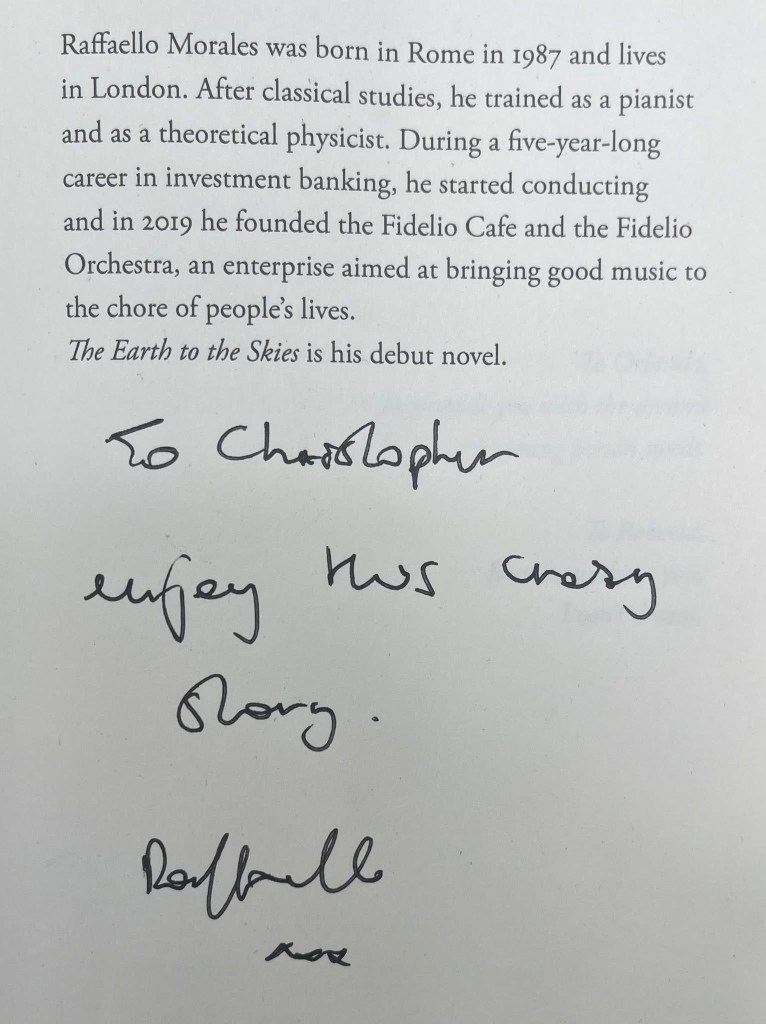 Raffaello Morales was born in Rome in 1987 and lives
in London. After classical studies, he trained as a pianist
and as a theoretical physicist. During a five-year-long
career in investment banking, he started conducting
and in 2019 he founded the Fidelio Cafe and the Fidelio
Orchestra, an enterprise aimed at bringing good music to
the chore of people's lives.
The Earth to the Skies is his debut novel.
To Christopher
enjoy this crazy
story.
Raffaello
xxx